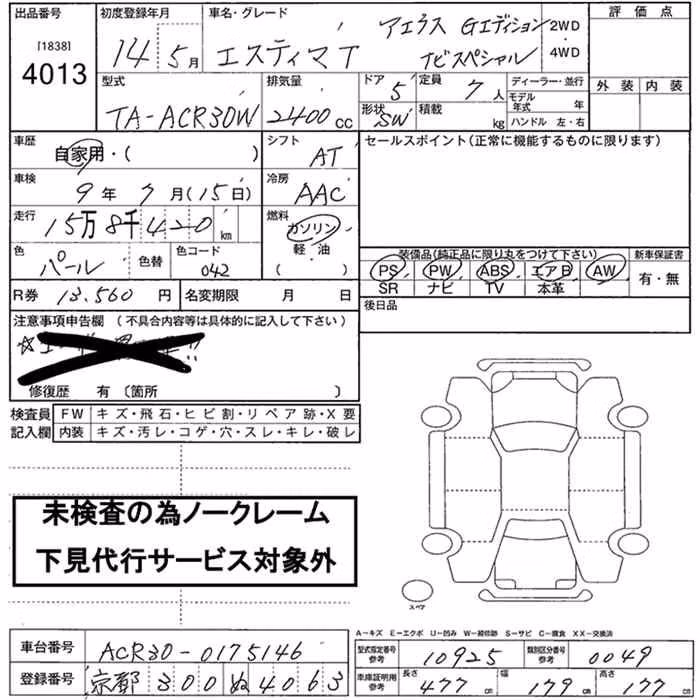 出品番号 [1838] 4013
初度登録年月 14年 5月
車名・グレード エスティマT アエラス Gエディション ナビスペシャル
2WD・4WD
評価点
外装 内装
型式 TA-ACR30W
排気量 2400 cc
ドア 5
形状 SW
定員 7人
積載 kg
ディーラー・並行
モデル年式 年
ハンドル 左・右
車歴 自家用・( )
シフト AT
セールスポイント(正常に機能するものに限ります)
車検 9年 7月(15日)
冷房 AAC
走行 15万8千420 km
燃料 ガソリン 軽・油 ( )
色 パール 色替
色コード 042
装備品(純正品に限り丸をつけて下さい)
PS PW ABS エアB AW
SR ナビ TV 本革
新車保証書 有・無
R券 13,560円
名変期限 月 日
後日品
注意事項申告欄 (不具合内容等は具体的に記入して下さい)
修復歴 有 〔箇所 〕
検査員記入欄
FW キズ・飛石・ヒビ割・リペア跡・X要
内装 キズ・汚レ・コゲ・穴・スレ・キレ・破レ
未検査の為ノークレーム
下見代行サービス対象外
スペア
A―キズ E―エクボ U―凹み W―補修跡 S―サビ C―腐食 XX―交換済
車台番号 ACR30-0175146
登録番号 京都 300 ぬ 4063
型式指定番号 参考 10925
類別区分番号 参考 0049
車庫証明用 参考 長さ 477 cm 幅 179 cm 高さ 177 cm